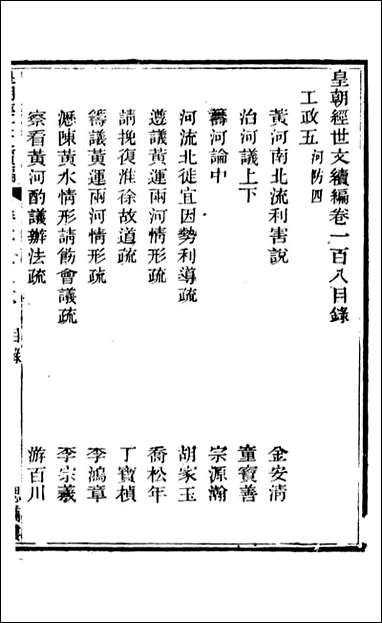 皇朝經世文續編卷一百八目錄
工政五 河防四
黃河南北流利害說 金安清
治河議上下 童寶善
籌河論中 宗源瀚
河流北徙宜因勢利導疏 胡家玉
遵議黃運兩河情形疏 喬松年
請挽復淮徐故道疏 丁寶楨
籌議黃運兩河情形疏 李鴻章
瀝陳黃水情形請飭會議疏 李宗羲
察看黃河酌議辦法疏 游百川
目錄